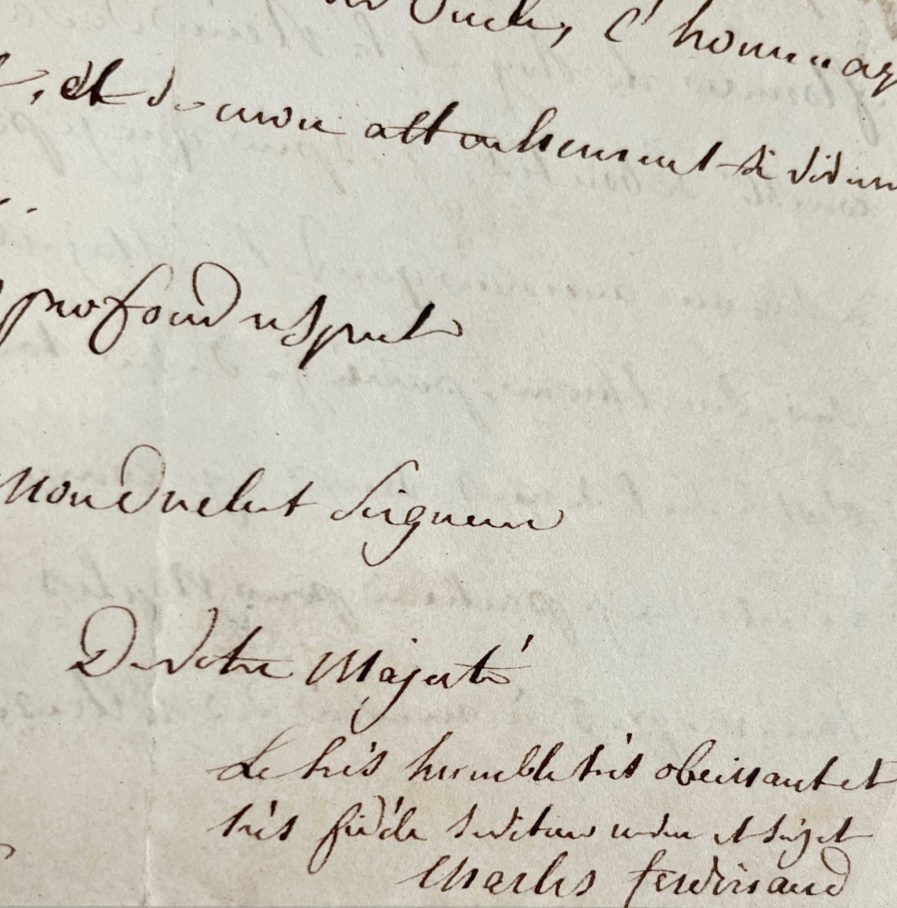 Oncle, l'hommag
, et de mon attachement si vivem
profond respect
Mon cher et Seigneur
De votre Majesté
Le très humble très obeissant et
très fidèle serviteur neveu et sujet
Charles ferdinand